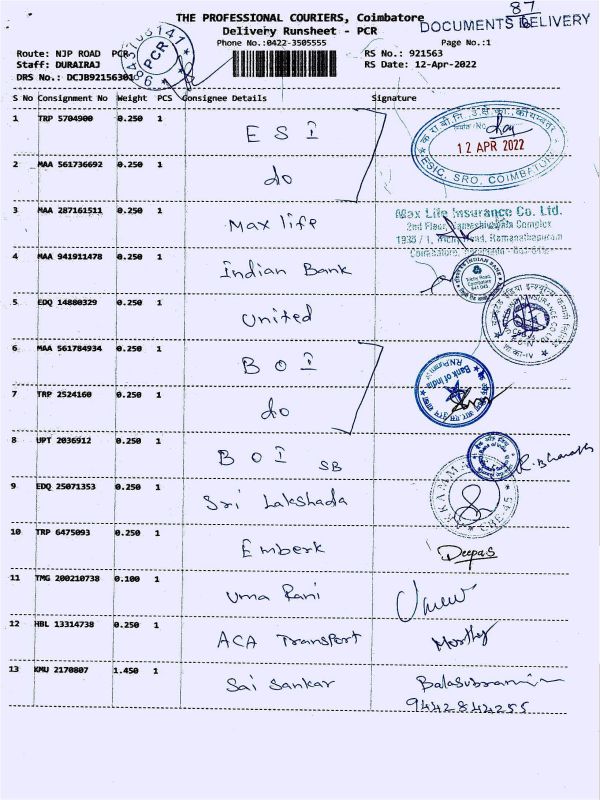 87
DOCUMENTS DELIVERY
THE PROFESSIONAL COURIERS, Coimbatore
Delivery Runsheet - PCR
Phone No.:0422-3505555
Page No.:1
Route: NJP ROAD PCR
RS No.: 921563
Staff: DURAIRAJ
RS Date: 12-Apr-2022
DRS No.: DCJB92156301
PCR
S No Consignment No Weight PCS Consignee Details Signature
1 TRP 5704900 0.250 1 ESI
12 APR 2022
ESIC, SRO, COIMBATORE
2 MAA 561736692 0.250 1 do
3 MAA 287161511 0.250 1 Max life
Max Life Insurance Co. Ltd.
4 MAA 941911478 0.250 1 Indian Bank
5 EDQ 14880329 0.250 1 United
6 MAA 561784934 0.250 1 BOI
Bank of India
7 TRP 2524160 0.250 1 do
8 UPT 2036912 0.250 1 BOI SB
R. Bharath
9 EDQ 25071353 0.250 1 Sri Lakshada
10 TRP 6475093 0.250 1 Emberk Deepas
11 TMG 200210738 0.100 1 Uma Rani
12 HBL 13314738 0.250 1 ACA Transport
13 KMU 2170807 1.450 1 Sai Sankar
9442844255